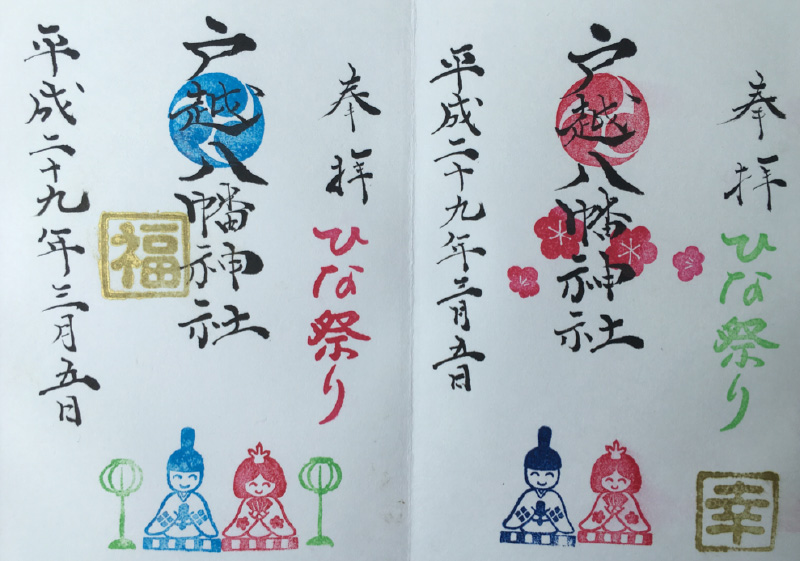 奉拝
ひな祭り
戸越八幡神社
平成二十九年三月五日
幸
奉拝
ひな祭り
戸越八幡神社
福
平成二十九年三月五日